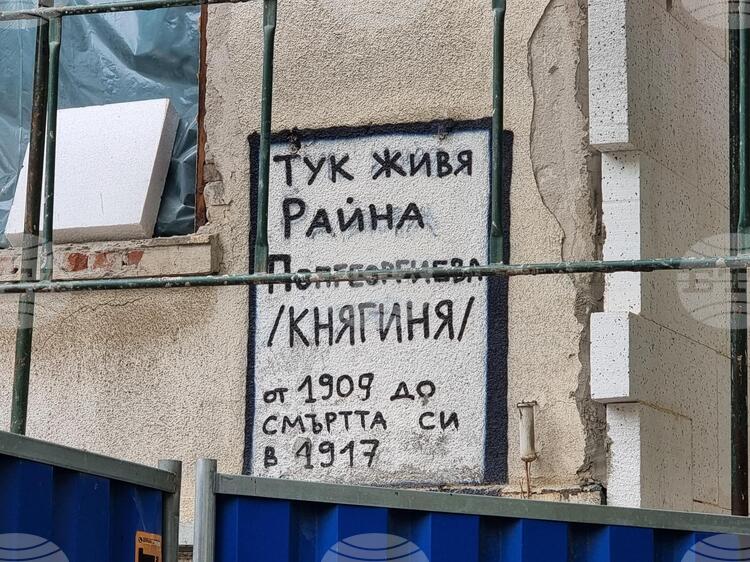 ТУК ЖИВЯ
РАЙНА
ПОПГЕОРГИЕВА
/КНЯГИНЯ/
от 1909 ДО
СМЪРТТА СИ
В 1917